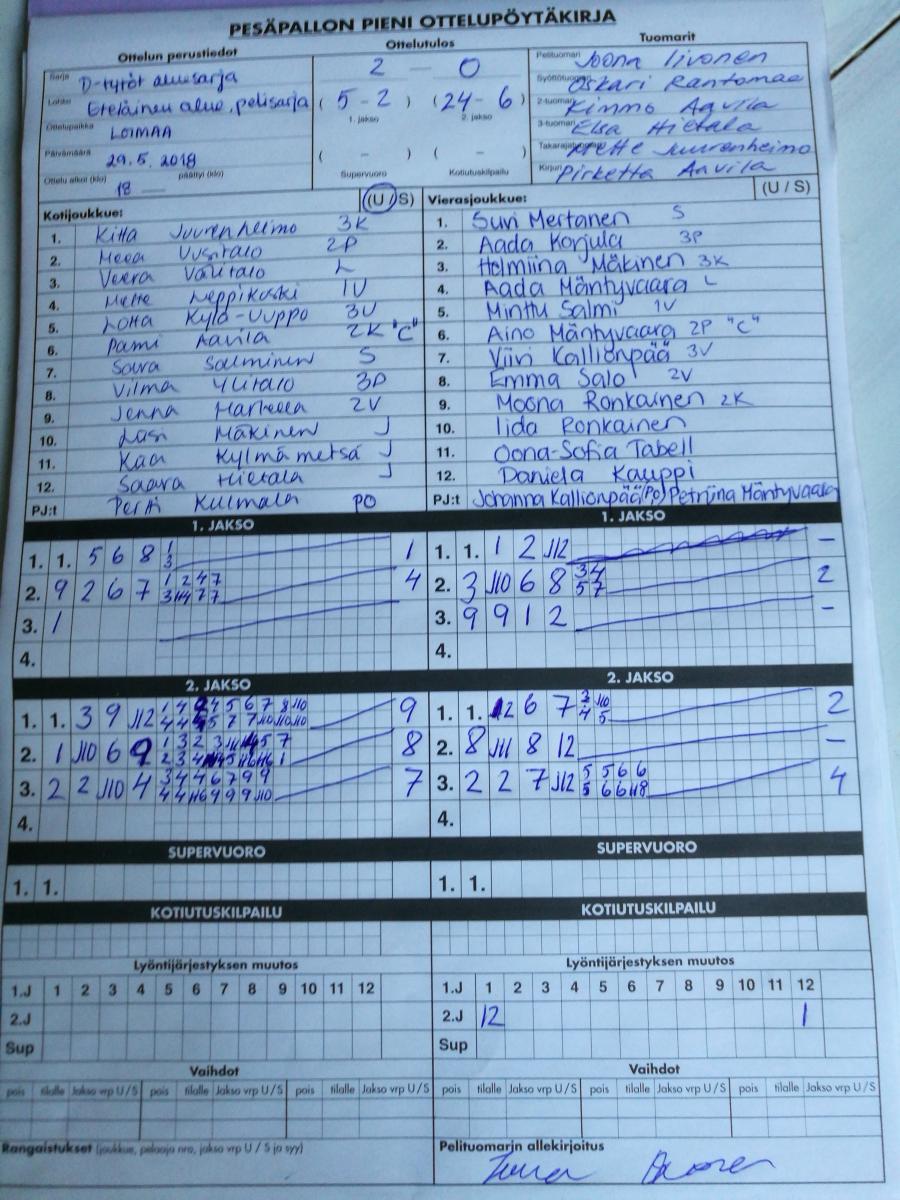 PESÄPALLON PIENI OTTELUPÖYTÄKIRJA
Ottelun perustiedot
Sarja D-tytöt aluesarja
Lohko Eteläinen alue, pelisarja
Ottelupaikka LOIMAA
Päivämäärä 29.5.2018
Ottelu alkoi (klo) 18 päättyi (klo)
Ottelutulos
2 — 0
(5-2) (24-6)
1. jakso 2. jakso
( - ) ( - )
Supervuoro Kotiutuskilpailu
Tuomarit
Pelituomari Joona Iivonen
Syöttötuomari Oskari Rantamaa
2-tuomari Kimmo Aavila
3-tuomari Elsa Hietala
Takarajatuomari Mette Juurenheimo
Kirjuri Pirketta Aavila
Kotijoukkue: (U / S)
1. Kitta Juurenheimo 3K
2. Uusitalo 2P
3. Veera Välitalo L
4. Mette Leppikoski 1V
5. Lotta Kylä-Uuppo 3V
6. Pami Aavila 2K "C"
7. Saara Salminen S
8. Vilma Ylitalo 3P
9. Jenna 2V
10. Mäkinen J
11. Kaa Kylmämetsä J
12. Saara Hietala J
PJ:t Pertti Kulmala PO
Vierasjoukkue: (U / S)
1. Suvi Mertanen S
2. Aada Korjula 3P
3. Helmiina Mäkinen 3K
4. Aada Mäntyvaara L
5. Minttu Salmi 1V
6. Aino Mäntyvaara 2P "C"
7. Viivi Kallionpää 3V
8. Emma Salo 2V
9. Moona Ronkainen 2K
10. Iida Ronkainen
11. Oona-Sofia Tabell
12. Daniela Kauppi
PJ:t Johanna Kallionpää (PO) Petriina Mäntyvaara
1. JAKSO
1. 1. 5 6 8 1 1
3
2. 9 2 6 7 1 2 4 7 4
3 J11 7 7
3. 1
4.
1. JAKSO
1. 1. 1 2 J12 -
2. 3 J10 6 8 3 4 2
5 7
3. 9 9 1 2 -
4.
2. JAKSO
1. 1. 3 9 J12 9
2. 1 J10 6 9 8
3. 2 2 J10 4 3 4 4 6 7 9 9 7
4.
2. JAKSO
1. 1. 12 6 7 3 J10 2
4 5
2. 8 J11 8 12 -
3. 2 2 7 J12 5 5 6 6 4
5 6 6 J18
4.
SUPERVUORO
1. 1.
SUPERVUORO
1. 1.
KOTIUTUSKILPAILU
KOTIUTUSKILPAILU
Lyöntijärjestyksen muutos
1.J 1 2 3 4 5 6 7 8 9 10 11 12
2.J
Sup
Lyöntijärjestyksen muutos
1.J 1 2 3 4 5 6 7 8 9 10 11 12
2.J 12 1
Sup
Vaihdot
pois tilalle Jakso vrp U / S pois tilalle Jakso vrp U / S pois tilalle Jakso vrp U / S
Vaihdot
pois tilalle Jakso vrp U / S pois tilalle Jakso vrp U / S pois tilalle Jakso vrp U / S
Rangaistukset (joukkue, pelaaja nro, jakso vrp U / S ja syy)
Pelituomarin allekirjoitus